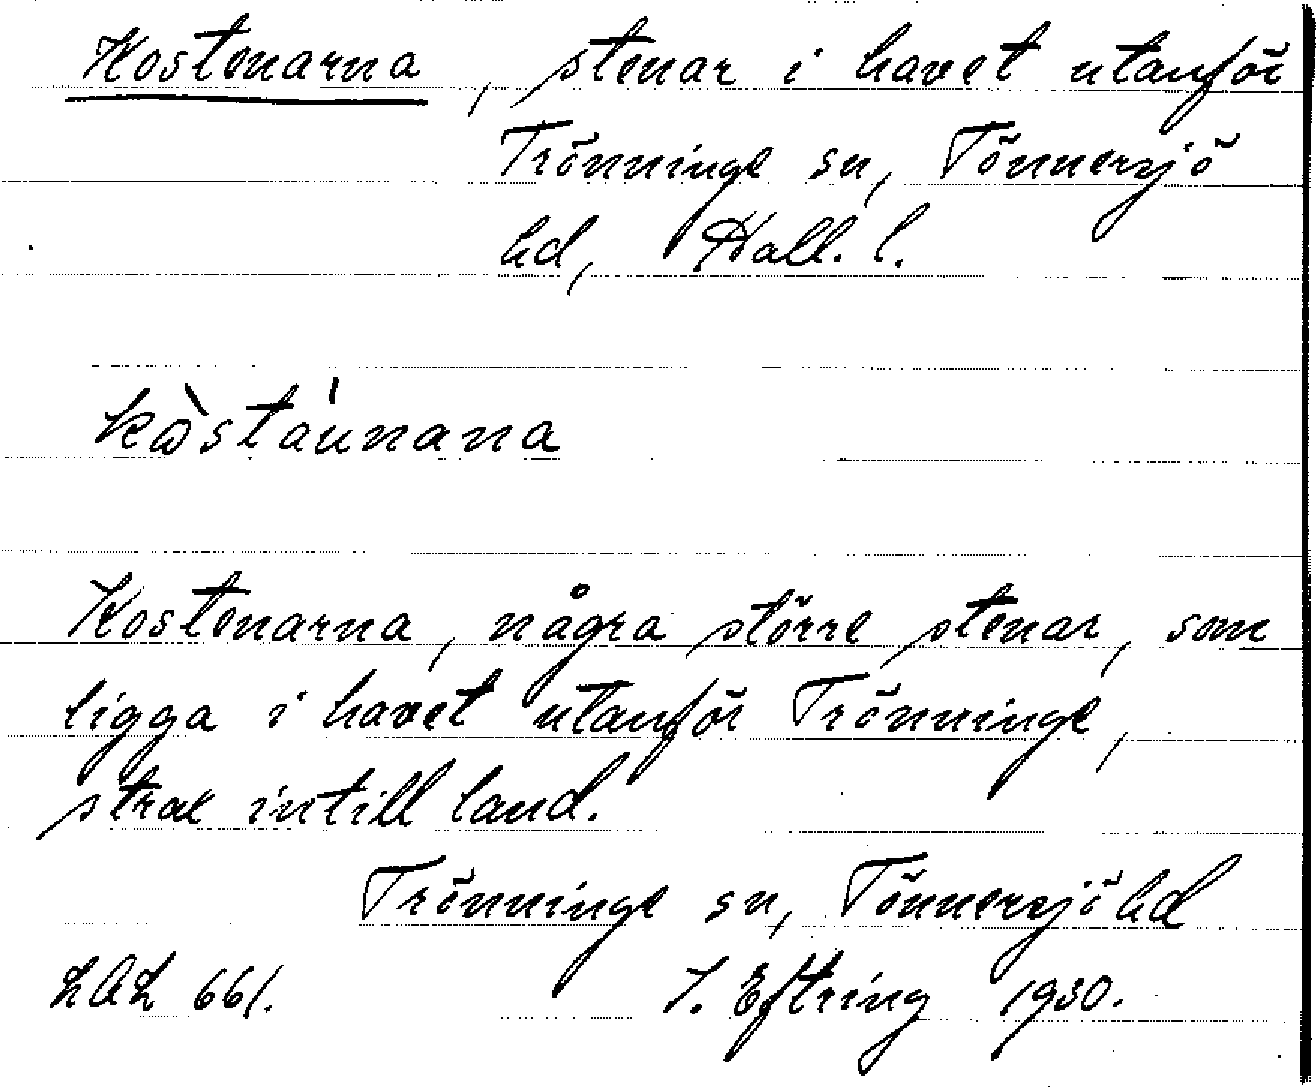 Kostenarna, stenar i havet utanför
Trönninge sn, Tönnersjö
hd, Hall. l.
kòstáunana
Kostenarna, några större stenar, som
ligga i havet utanför Trönninge,
strax intill land.
Trönninge sn, Tönnersjö hd
LAL 661.
J. Eftring 1930.